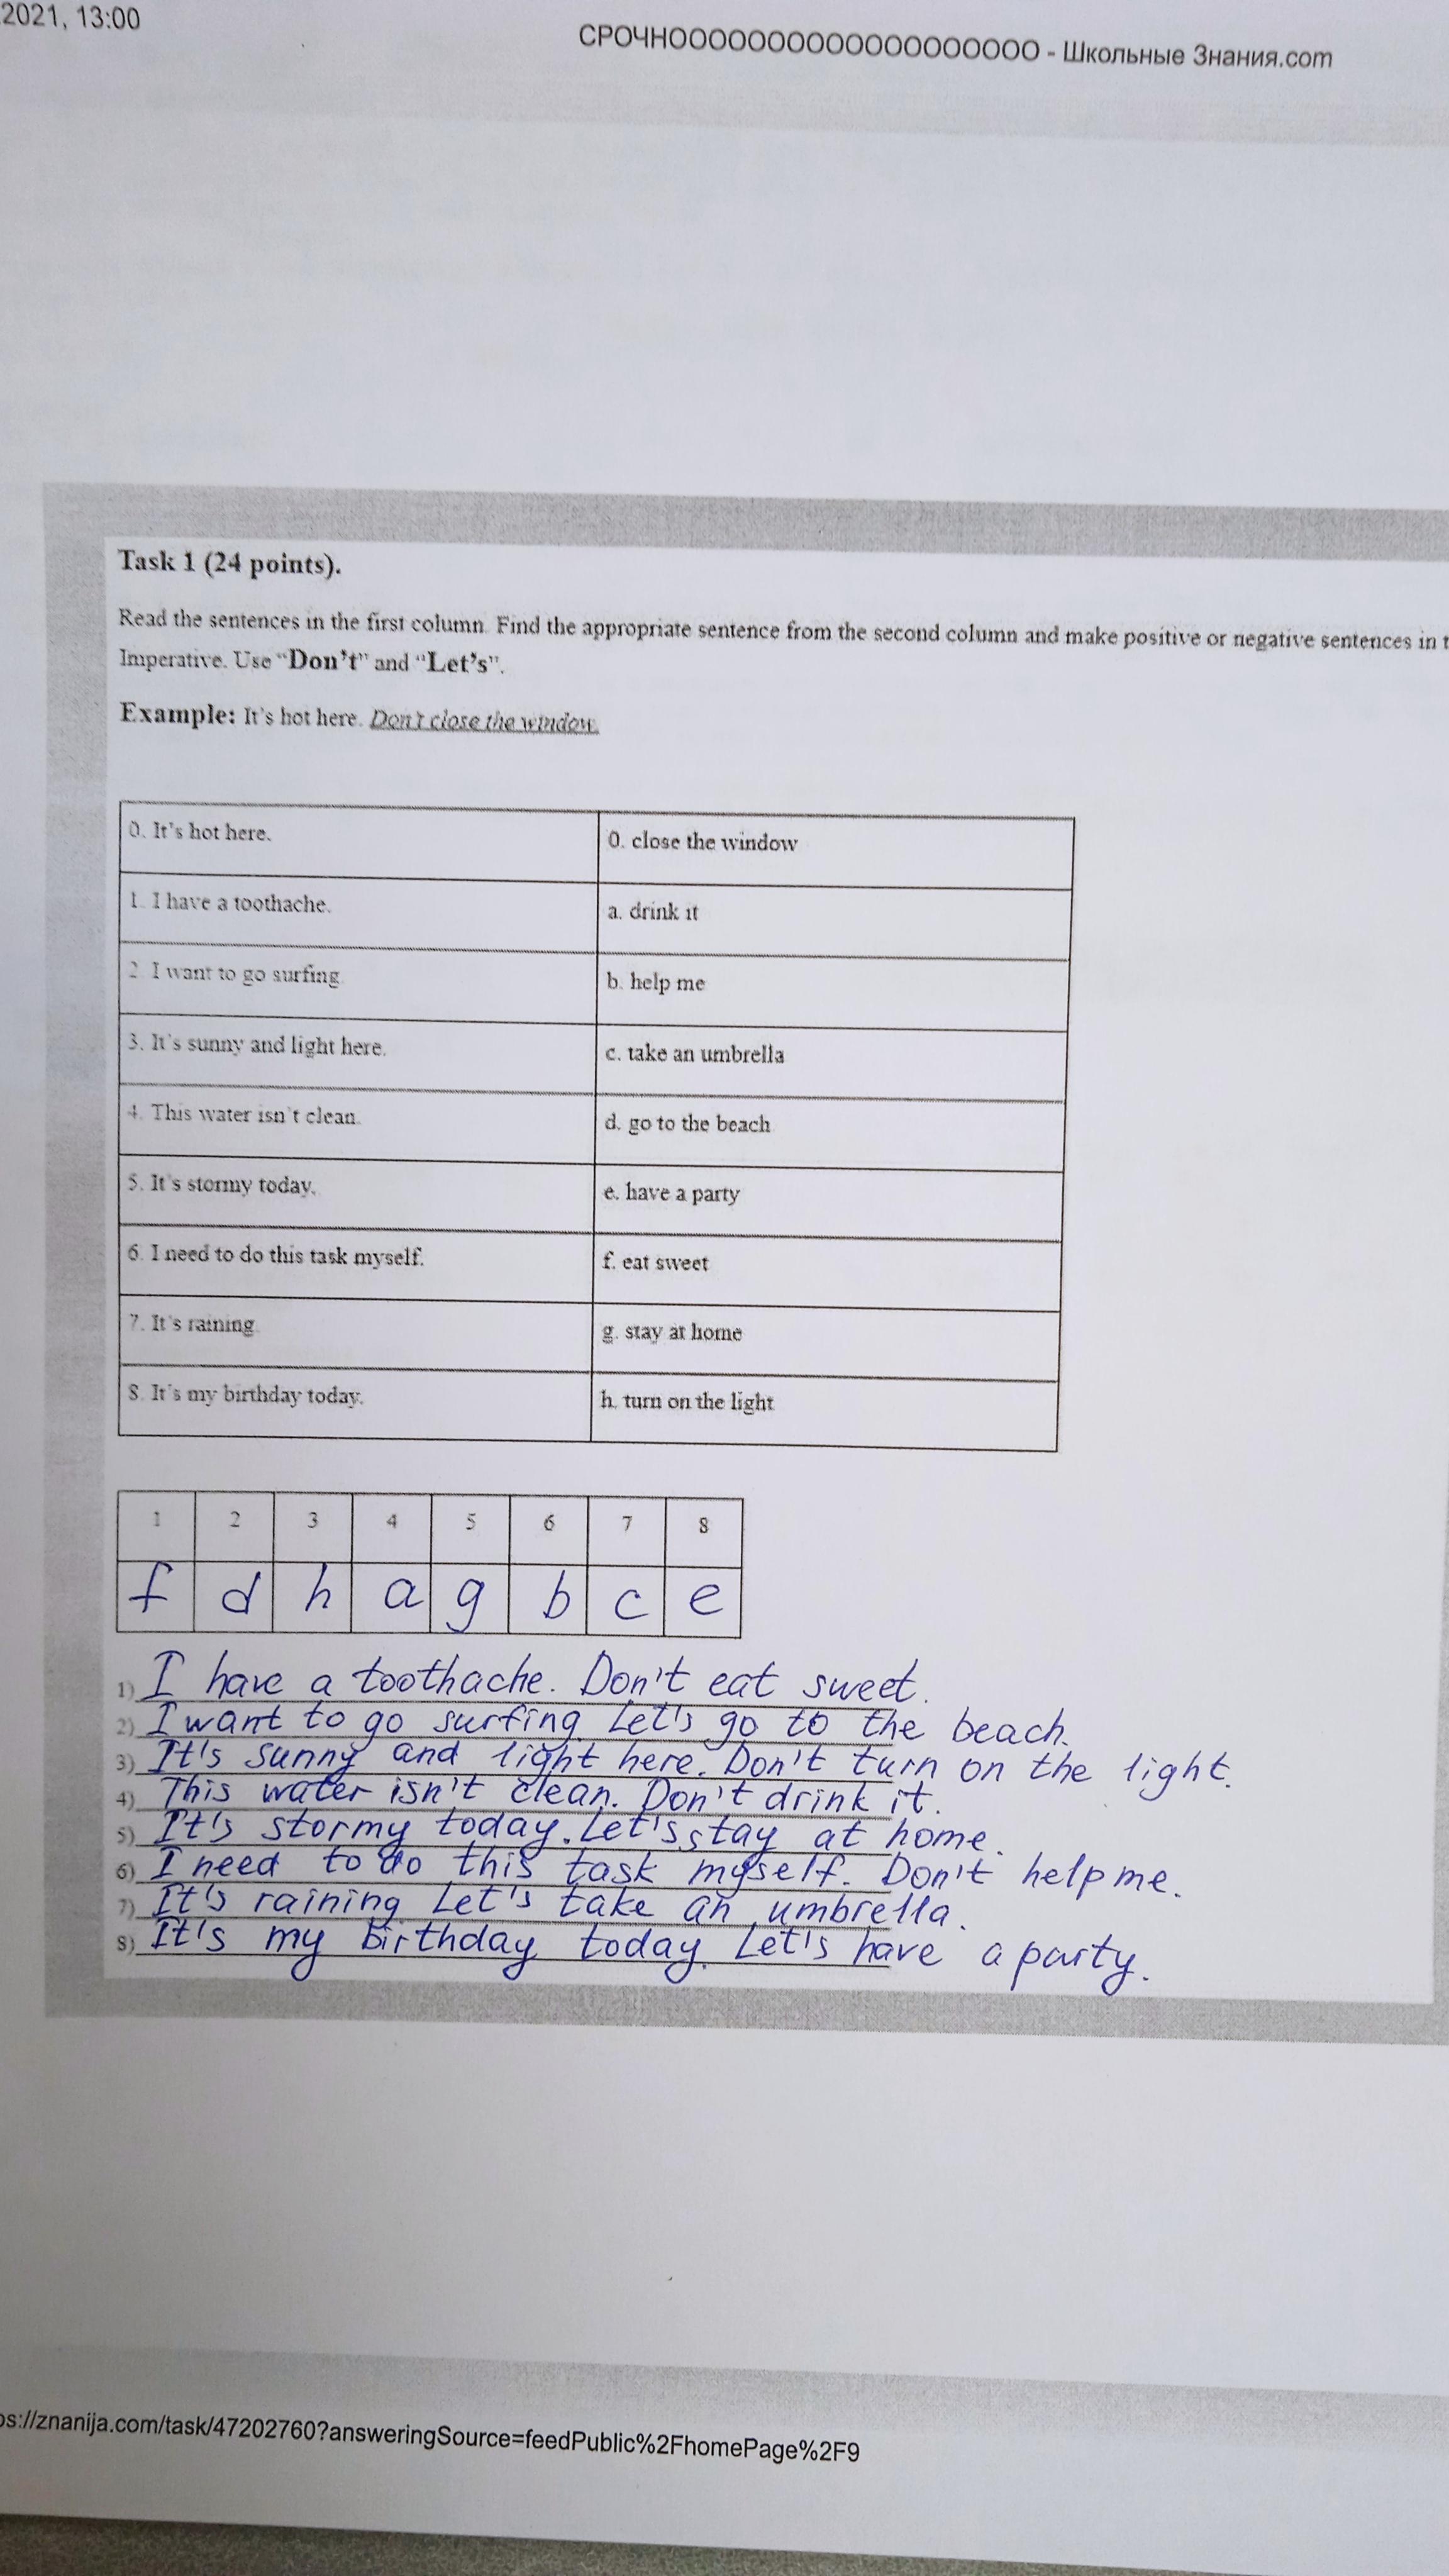 2021, 13:00
СРОЧНООООООООООООООООООО - Школьные Знания.com
Task 1 (24 points).
Read the sentences in the first column. Find the appropriate sentence from the second column and make positive or negative sentences in t
Imperative. Use “Don’t” and “Let’s”.
Example: It’s hot here. Don't close the window.
0. It’s hot here.
0. close the window
1. I have a toothache.
a. drink it
2. I want to go surfing
b. help me
3. It’s sunny and light here.
c. take an umbrella
4. This water isn’t clean.
d. go to the beach
5. It’s stormy today.
e. have a party
6. I need to do this task myself.
f. eat sweet
7. It’s raining
g. stay at home
8. It’s my birthday today.
h. turn on the light
1 2 3 4 5 6 7 8
f d h a g b c e
1) I have a toothache. Don't eat sweet.
2) I want to go surfing. Let's go to the beach.
3) It's sunny and light here. Don't turn on the light.
4) This water isn't clean. Don't drink it.
5) It's stormy today. Let's stay at home.
6) I need to do this task myself. Don't help me.
7) It's raining Let's take an umbrella.
8) It's my birthday today. Let's have a party.
ps://znanija.com/task/47202760?answeringSource=feedPublic%2FhomePage%2F9